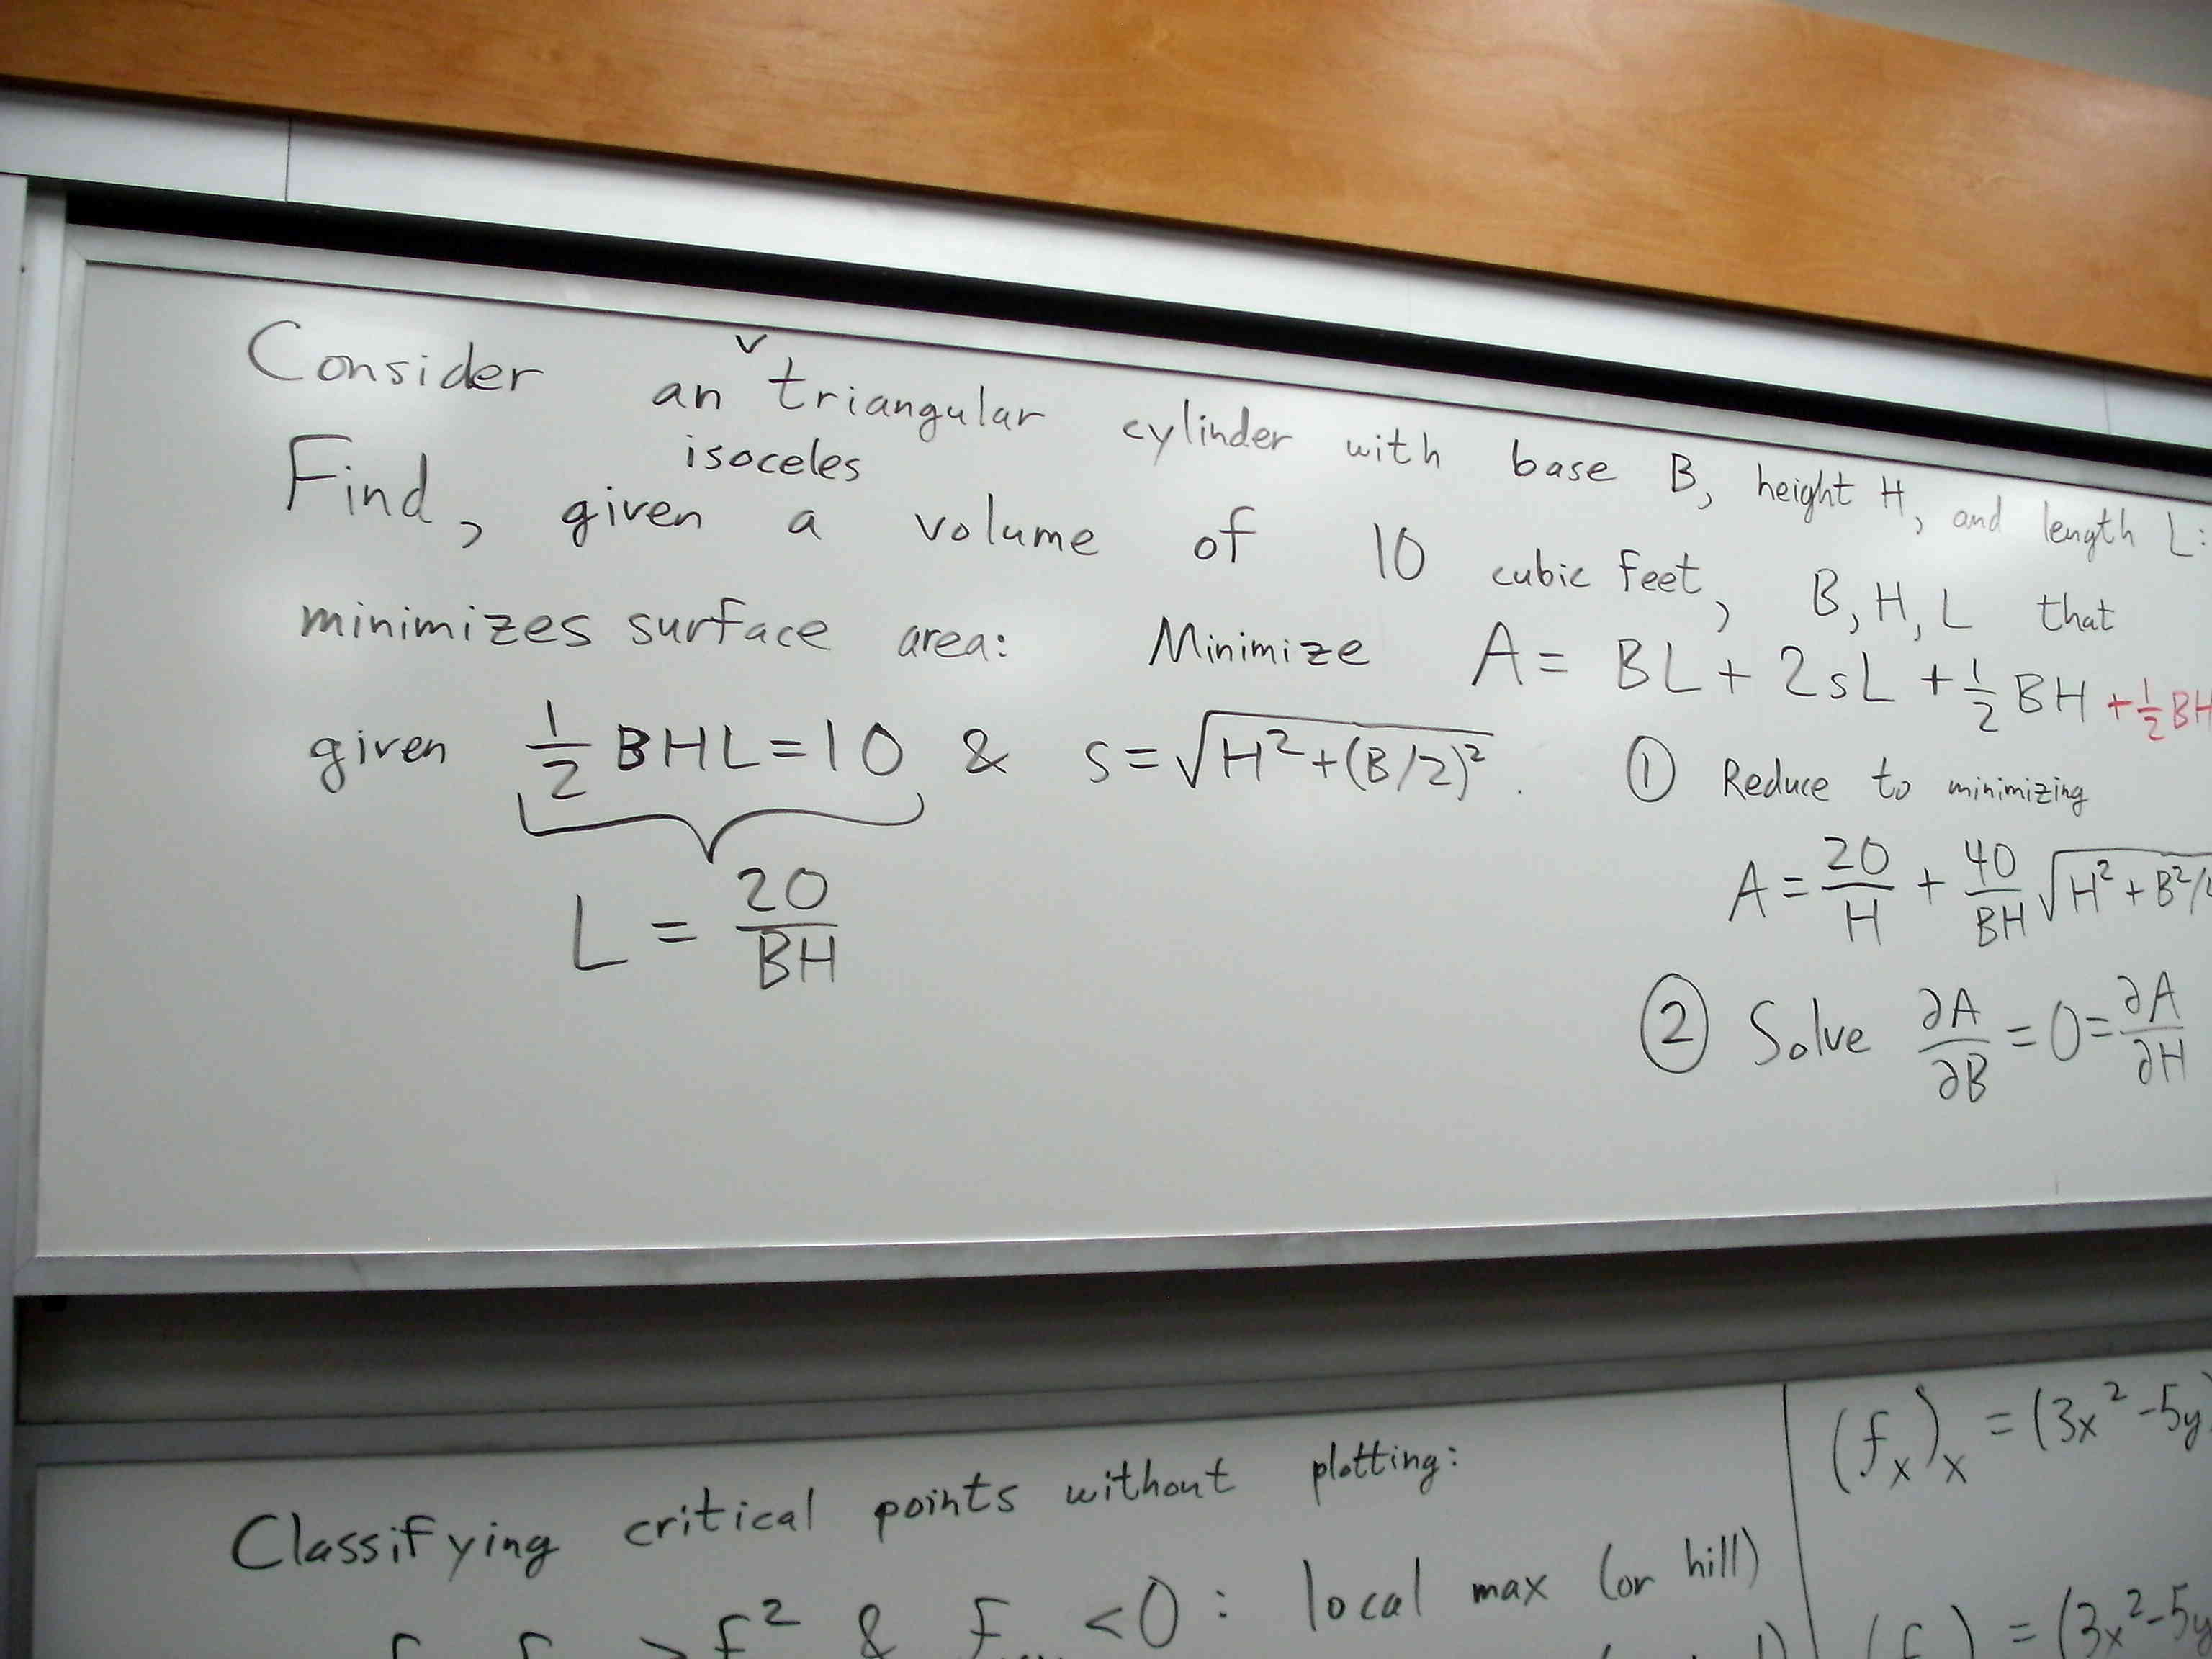 Consider an ˅ triangular cylinder with base B, height H, and length L:
isoceles
Find, given a volume of 10 cubic feet, B, H, L that
minimizes surface area: Minimize A = BL + 2sL + 1/2 BH + 1/2 BH
given 1/2 BHL = 10 & s = √(H² + (B/2)²).
① Reduce to minimizing
L = 20/BH
A = 20/H + 40/BH √(H² + B²/
② Solve ∂A/∂B = 0 = ∂A/∂H
Classifying critical points without plotting:
> f² & f < 0 : local max (or hill)
(fx)x = (3x² - 5y
= (3x² - 5y